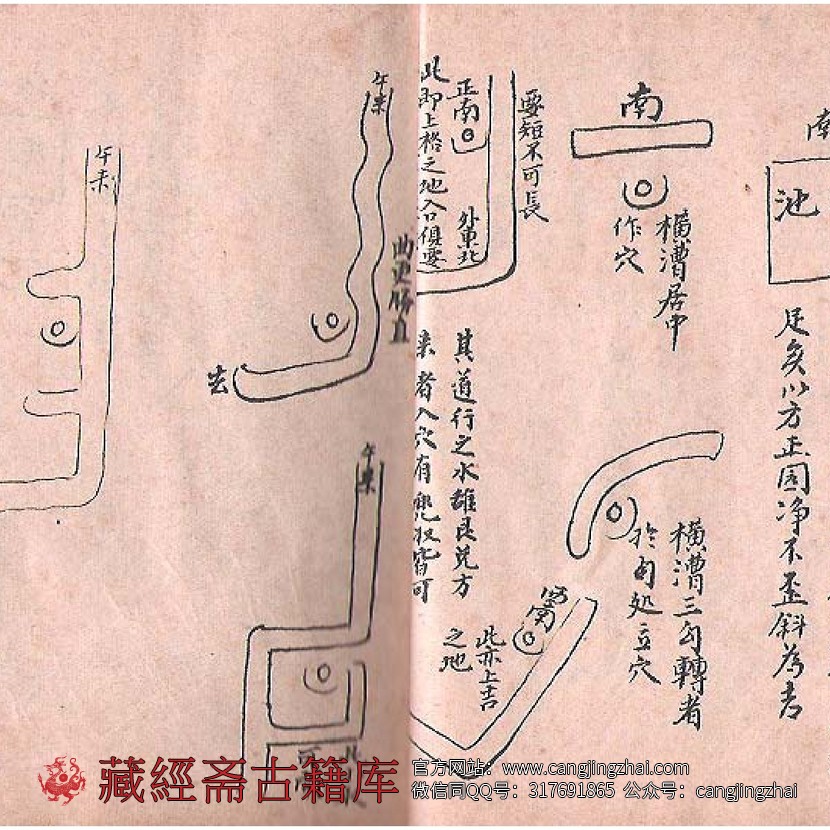 南
池
足矣以方正园净不歪斜为吉
南
横漕居中
作穴
横漕三勾轉者
於勾处立穴
要短不可長
正南
外車北
此即上格之地入口俱要
其道行之水雖艮兑方
来者入穴有兜收皆可
西南
此亦上吉
之地
午来
曲更勝直
去
午来
午来
藏經斋古籍库
官方网站：www.cangjingzhai.com
微信同QQ号：317691865 公众号：cangjingzhai